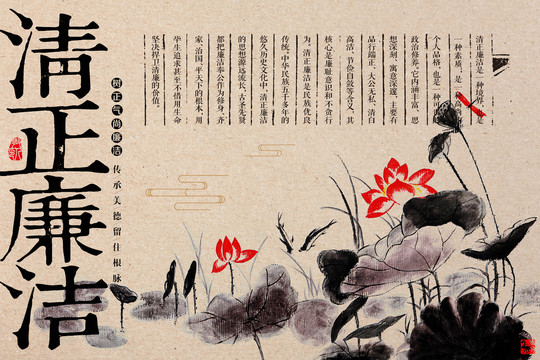 清正廉洁
树正气尚廉洁
传承美德留住根脉
清正廉洁是一种境界，是
一种素质，是一
个人品格，也是一种
政治修养。它内涵丰富、思
想深刻、寓意深邃，主要有
品行端正、大公无私、清白
高洁、节俭自敛等含义，其
核心是廉耻意识和不贪行
为。清正廉洁是民族优良
传统。中华民族五千多年的
悠久历史文化中，清正廉洁
的思想源远流长，古圣先贤
都把廉洁奉公作为修身、齐
家、治国、平天下的根本，用
毕生追求甚至不惜用生命
坚决捍卫清廉的价值。